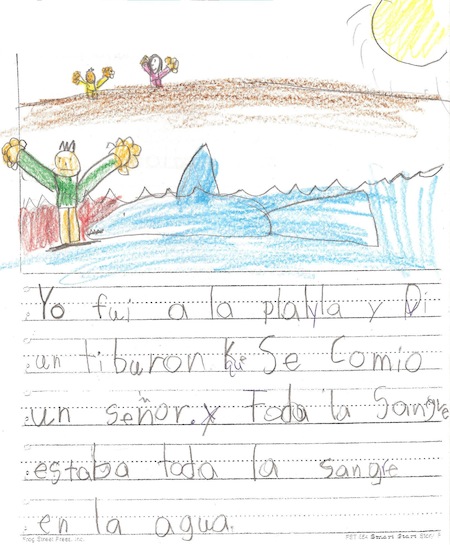 Yo fui a la plalla y Di
un tiburon que Se Comio
un señor. y Toda la Sangre
estaba toda la sangre
en la agua.
Frog Street Press, Inc.